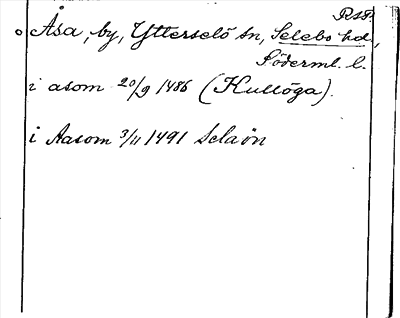 Rss.
Åsa, by, Ytterselö sn, Selebo hd,
Söderml. l.
i asom 20/9 1486 (Kullöga).
i Aasom 3/11 1491 Selaön